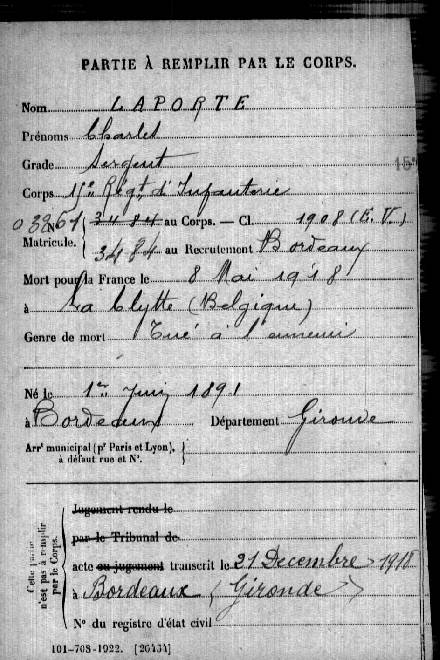 PARTIE À REMPLIR PAR LE CORPS.
Nom LAPORTE
Prénoms Charles
Grade Sergent
Corps Régt d'Infanterie
N° 3484 au Corps. — Cl. 1908 (E.V)
Matricule. 3484 au Recrutement Bordeaux
Mort pour la France le 8 Mai 1918
à La Clytte (Belgique)
Genre de mort Tué à l'ennemi
Né le 1er Juin 1891
à Bordeaux Département Gironde
Arrt municipal (pr Paris et Lyon),
à défaut rue et N°.
Cette partie
n'est pas à remplir
par le Corps.
Jugement rendu le
par le Tribunal de
acte ou jugement transcrit le 21 Decembre 1918
à Bordeaux (Gironde)
N° du registre d'état civil
101-708-1922. [26434]